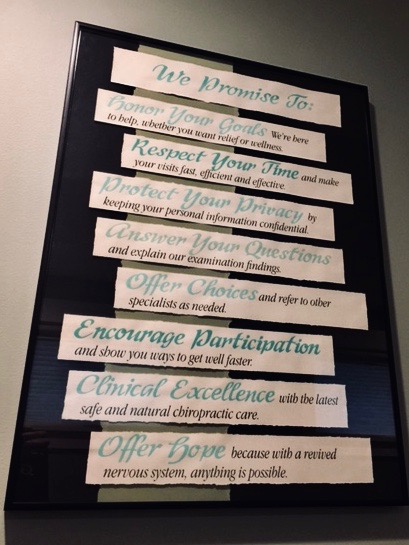 We Promise To:
Honor Your Goals We're here
to help, whether you want relief or wellness.
Respect Your Time and make
your visits fast, efficient and effective.
Protect Your Privacy by
keeping your personal information confidential.
Answer Your Questions
and explain our examination findings.
Offer Choices and refer to other
specialists as needed.
Encourage Participation
and show you ways to get well faster.
Clinical Excellence with the latest
safe and natural chiropractic care.
Offer Hope because with a revived
nervous system, anything is possible.